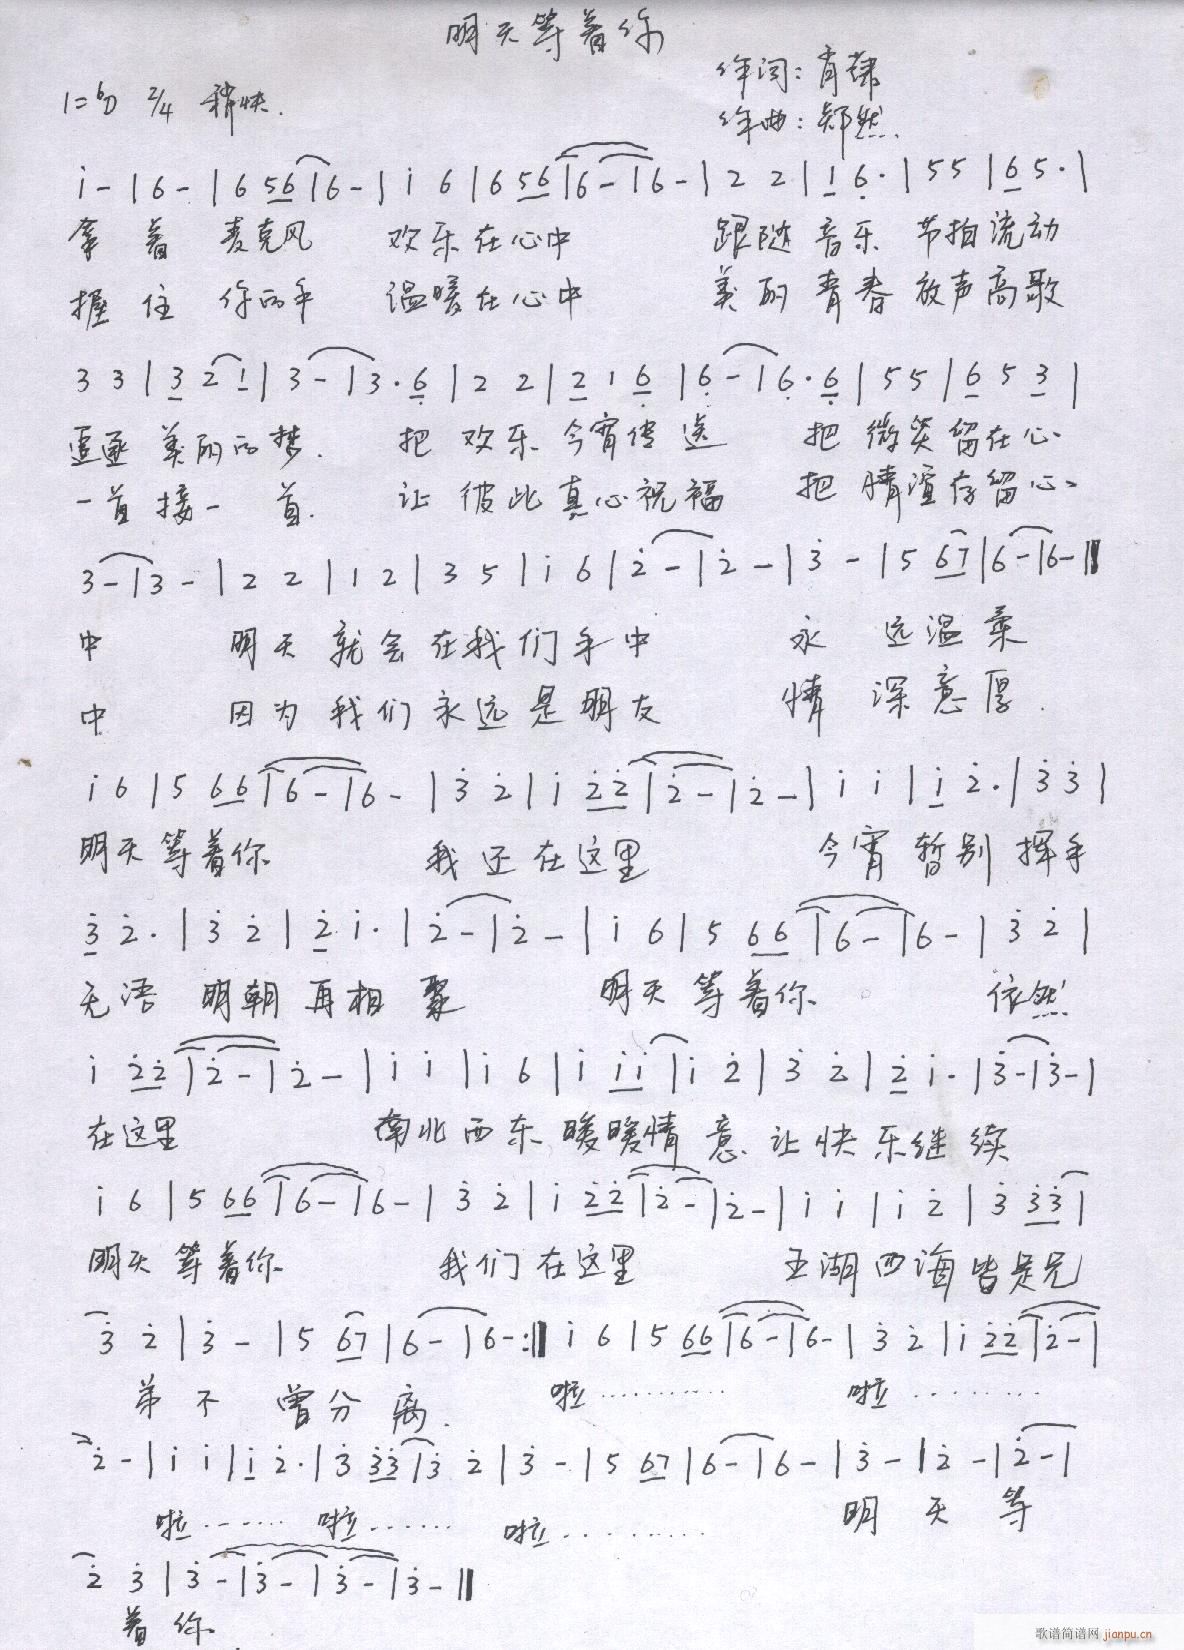 明天等着你
作词：肖
作曲：郑然
1=♭B 2/4 稍快.
i - | 6 - | 6 56 | 6 - | i 6 | 6 56 | 6 - | 6 - | 2 2 | 1 6· | 5 5 | 6 5· |
拿着 麦克风 欢乐在心中 跟随音乐 节拍流动
握住 你的手 温暖在心中 美丽青春 放声高歌
3 3 | 3 2 1 | 3 - | 3· 6 | 2 2 | 2 1 6 | 6 - | 6· 6 | 5 5 | 6 5 3 |
追逐美丽的梦. 把欢乐今宵传送 把微笑留在心
一首接一首. 让彼此真心祝福 把情谊存留心
3 - | 3 - | 2 2 | 1 2 | 3 5 | i 6 | 2̇ - | 2̇ - | 3̇ - | 5 67 | 6 - | 6 - ‖
中 明天就会在我们手中 永远温柔
中 因为我们永远是朋友 情深意厚.
i 6 | 5 66 | 6 - | 6 - | 3̇ 2̇ | i 2̇2̇ | 2̇ - | 2̇ - | i i | i 2̇· | 3̇ 3̇ |
明天等着你 我还在这里 今宵暂别挥手
3̇ 2̇· | 3̇ 2̇ | 2̇ i· | 2̇ - | 2̇ - | i 6 | 5 66 | 6 - | 6 - | 3̇ 2̇ |
无语 明朝再相聚 明天等着你 依然
i 2̇2̇ | 2̇ - | 2̇ - | i i | i 6 | i ii | i 2̇ | 3̇ 2̇ | 2̇ i· | 3̇ - | 3̇ - |
在这里 南北西东 暖暖情意 让快乐继续
i 6 | 5 66 | 6 - | 6 - | 3̇ 2̇ | i 2̇2̇ | 2̇ - | 2̇ - | i i | i 2̇ | 3̇ 3̇3̇ |
明天等着你 我们在这里 五湖四海皆是兄
3̇ 2̇ | 3̇ - | 5 67 | 6 - | 6 - :‖ i 6 | 5 66 | 6 - | 6 - | 3̇ 2̇ | i 2̇2̇ | 2̇ - |
弟不曾分离. 啦………… 啦…………
2̇ - | i i | i 2̇· | 3̇ 3̇3̇ | 3̇ 2̇ | 3̇ - | 5 67 | 6 - | 6 - | 3̇ - | 2̇ - | 2̇ - |
啦…… 啦…… 啦………… 明天等
2̇ 3̇ | 3̇ - | 3̇ - | 3̇ - | 3̇ - ‖
着你.
歌谱简谱网 jianpu.cn